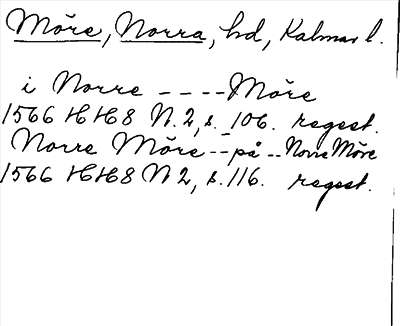 Möre, Norra, hd, Kalmar l.
i Norre ---- Möre
1566 HH8 N. 2, s. 106. regest.
Norre Möre -- på -- Norre Möre
1566 HH8 N 2, s. 116. regest.